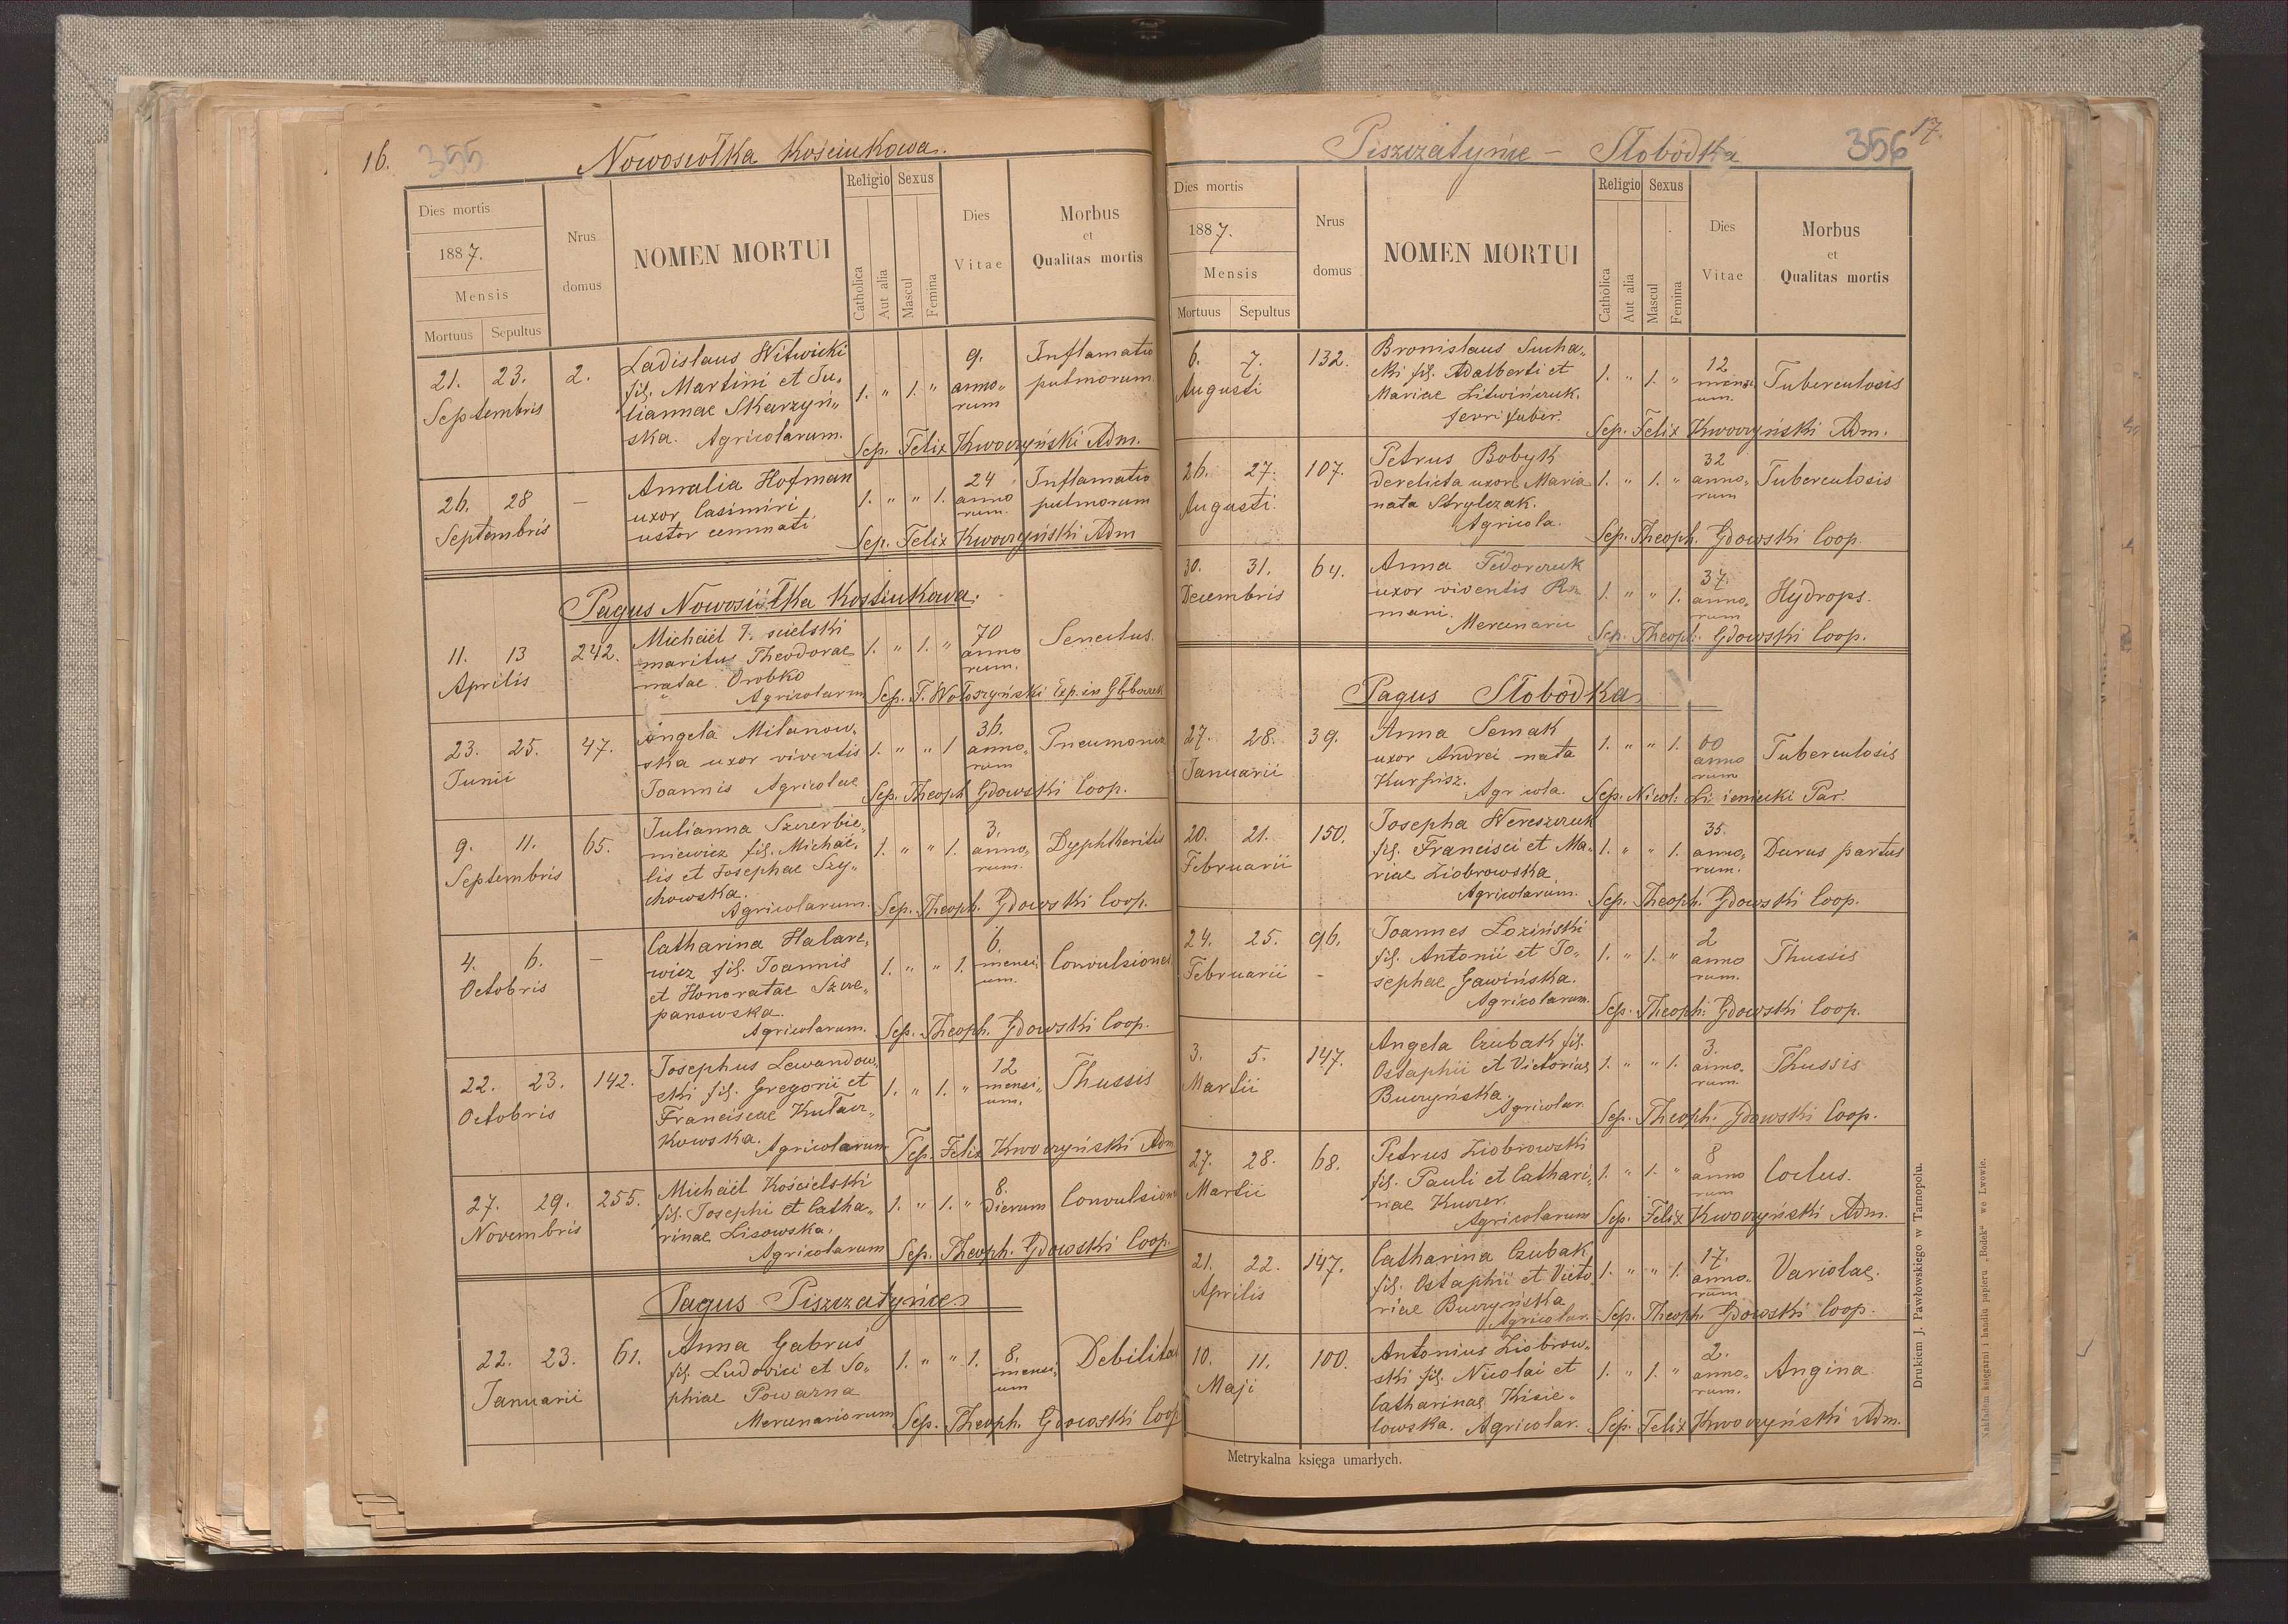 16.
355
Nowosiołka Kościukowa.
Dies mortis
1887.
Mensis
Mortuus
Sepultus
Nrus
domus
NOMEN MORTUI
Religio
Sexus
Catholica
Aut alia
Mascul
Femina
Dies
Vitae
Morbus
et
Qualitas mortis
21. 23. 2.
Septembris
Ladislaus Witwicki
fil. Martini et Ju„
liannae Skarzyń„
ska. Agricolarum.
1. „ 1. „
9.
anno„
rum
Inflamatio
pulmorum.
Sep. Felix Kwoczyński Adm.
26. 28 —
Septembris
Amalia Hofman
uxor Casimiri
ustor cemmati
1. „ „ 1.
24
anno
rum.
Inflamatio
pulmorum
Sep. Felix Kwoczyński Adm
Pagus Nowosiółka Kostiukowa.
11. 13 242.
Aprilis
Michaël
maritus Theodorae
natae Orobko
Agricolarum
1. „ 1. „
70
anno
rum.
Senectus.
Sep. T. Wołoszyński Exp. in Głęboczek
23. 25. 47.
Junii
Angela Milanow„
ska uxor viventis
Joannis Agricolae
1. „ „ 1
36.
anno„
rum
Pneumonia
Sep. Theoph Gdowski Coop.
9. 11. 65.
Septembris
Julianna Szczerbie„
niewicz fil. Michaë„
lis et Josephae Szy„
chowska.
Agricolarum.
1. „ „ 1.
3.
anno„
rum.
Dyphtheritis
Sep. Theoph. Gdowski Coop.
4. 6. —
Octobris
Catharina Halare„
wicz fil. Joannis
et Honoratae Szcze„
panowska.
Agricolarum.
1. „ „ 1.
6.
mensi„
um.
Convulsiones
Sep. Theoph. Gdowski Coop.
22. 23. 142.
Octobris
Josephus Lewandow„
ski fil. Gregorii et
Franciscae Kułacz„
kowska.
Agricolarum
1. „ 1. „
12
mensi„
um.
Thussis
Sep. Felix Kwoczyński Adm
27. 29. 255.
Novembris
Michaël Kościelski
fil. Josephi et Catha„
rinae Lisowska.
Agricolarum
1. „ 1. „
8.
Dierum
Convulsiones
Sep. Theoph. Gdowski Coop.
Pagus Piszczatyńce
22. 23. 61.
Januarii
Anna Gabruś
fil. Ludovici et So„
phiae Powarna
Mercenariorum
1. „ „ 1.
8.
mensi„
um
Debilitas
Sep. Theoph. Gdowski Coop
Piszczatyńce — Słobódka
356
17.
Dies mortis
1887.
Mensis
Mortuus
Sepultus
Nrus
domus
NOMEN MORTUI
Religio
Sexus
Catholica
Aut alia
Mascul
Femina
Dies
Vitae
Morbus
et
Qualitas mortis
6. 7. 132.
Augusti
Bronislaus Sucha„
cki fil. Adalberti et
Mariae Litwińczuk.
ferri faber.
1. „ 1. „
12
mensi„
um.
Tuberculosis
Sep. Felix Kwoczyński Adm.
26. 27. 107.
Augusti
Petrus Bobyk
derelicta uxor Maria
nata Strylczak.
Agricola.
1. „ 1. „
32
anno„
rum
Tuberculosis
Sep. Theoph. Gdowski Coop.
30. 31. 64.
Decembris
Anna Fedorczuk
uxor viventis Ro„
mani.
Mercenarii
1. „ „ 1.
37.
anno„
rum
Hydrops.
Sep. Theoph. Gdowski Coop.
Pagus Słobódka
27. 28. 39.
Januarii
Anna Semak
uxor Andrei nata
Kurpisz.
Agricola.
1. „ „ 1.
60
anno
rum
Tuberculosis
Sep. Nicol: Par.
20. 21. 150.
Februarii
Josepha Wereszczuk
fil. Francisci et Ma„
riae Ziobrowska
Agricolarum.
1. „ „ 1.
35.
anno„
rum.
Durus partus
Sep. Theoph. Gdowski Coop.
24. 25. 96.
Februarii —
Joannes Łoziński
fil. Antonii et Jo„
sephae Gawińska.
Agricolarum.
1. „ 1. „
2
anno
rum.
Thussis
Sep. Theoph. Gdowski Coop.
3. 5. 147.
Martii
Angela Czubak fil.
Ostaphii et Victoriae
Buczyńska.
Agricolar.
1. „ „ 1.
3.
anno„
rum.
Thussis
Sep. Theoph. Gdowski Coop.
27. 28. 68.
Martii
Petrus Ziobrowski
fil. Pauli et Cathari„
nae Kuczer.
Agricolarum
1. „ 1. „
8
anno
rum
Coctus.
Sep. Felix Kwoczyński Adm.
21. 22. 147.
Aprilis
Catharina Czubak
fil. Ostaphii et Victo
riae Buczyńska
Agricolar.
1. „ „ 1.
17.
anno„
rum
Variolae.
Sep. Theoph. Gdowski Coop.
10. 11. 100.
Maji
Antonius Ziobrow„
ski fil. Nicolai et
Catharinae Kisie„
lowska. Agricolar.
1. „ 1. „
2.
anno„
rum.
Angina
Sep. Felix Kwoczyński Adm.
Metrykalna księga umarłych.
Drukiem J. Pawłowskiego w Tarnopolu.
Nakładem księgarni i handlu papieru „Bodek“ we Lwowie.